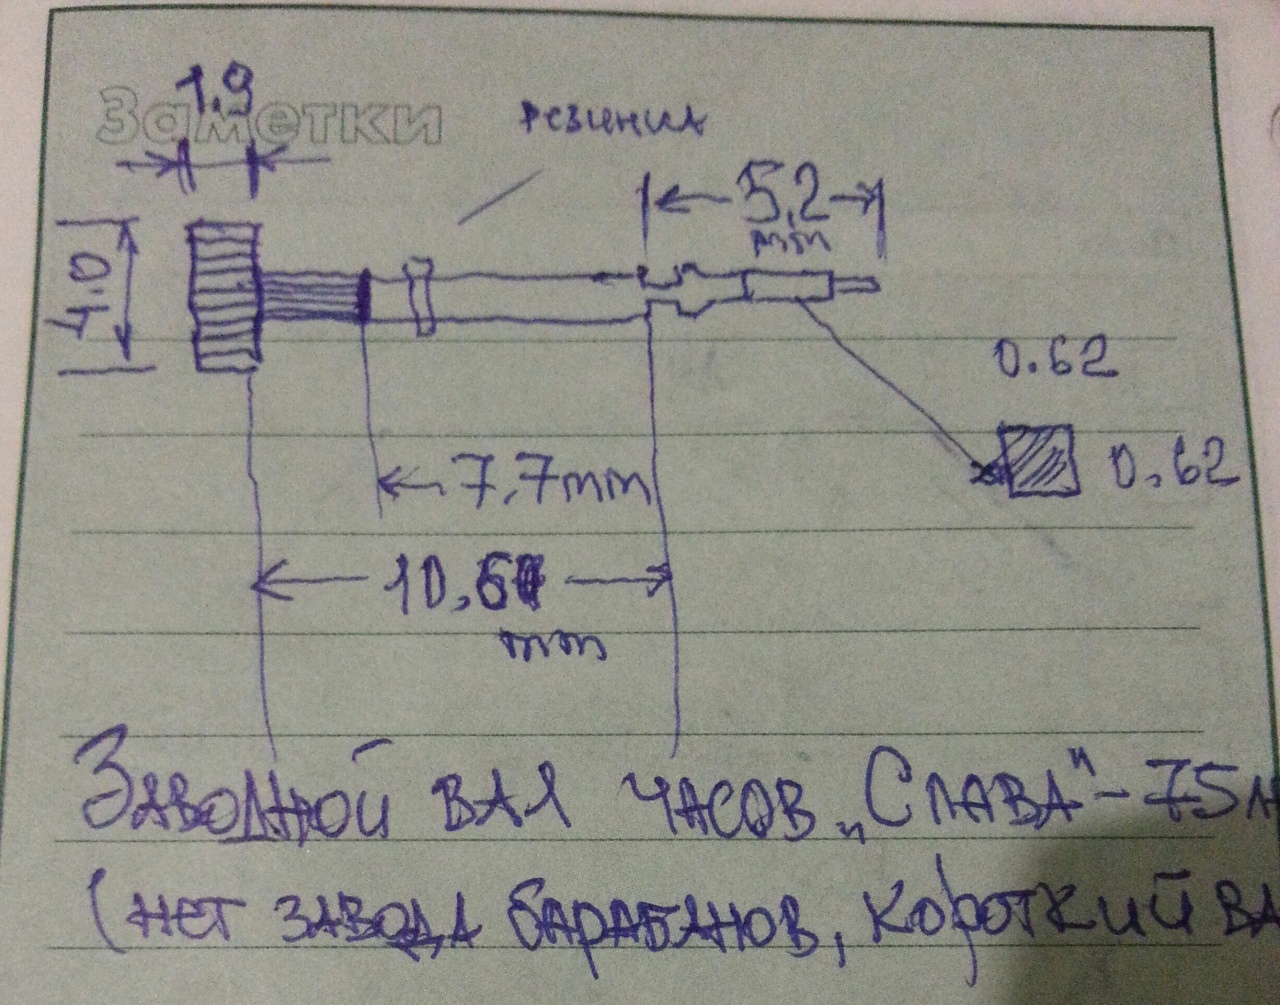 1.9
Заметки
резинка
5,2
mm
4.0
0.62
0.62
7,7mm
10,6
mm
Заводной вал часов „Слава" - 75 л
(нет завода барабанов, короткий ва